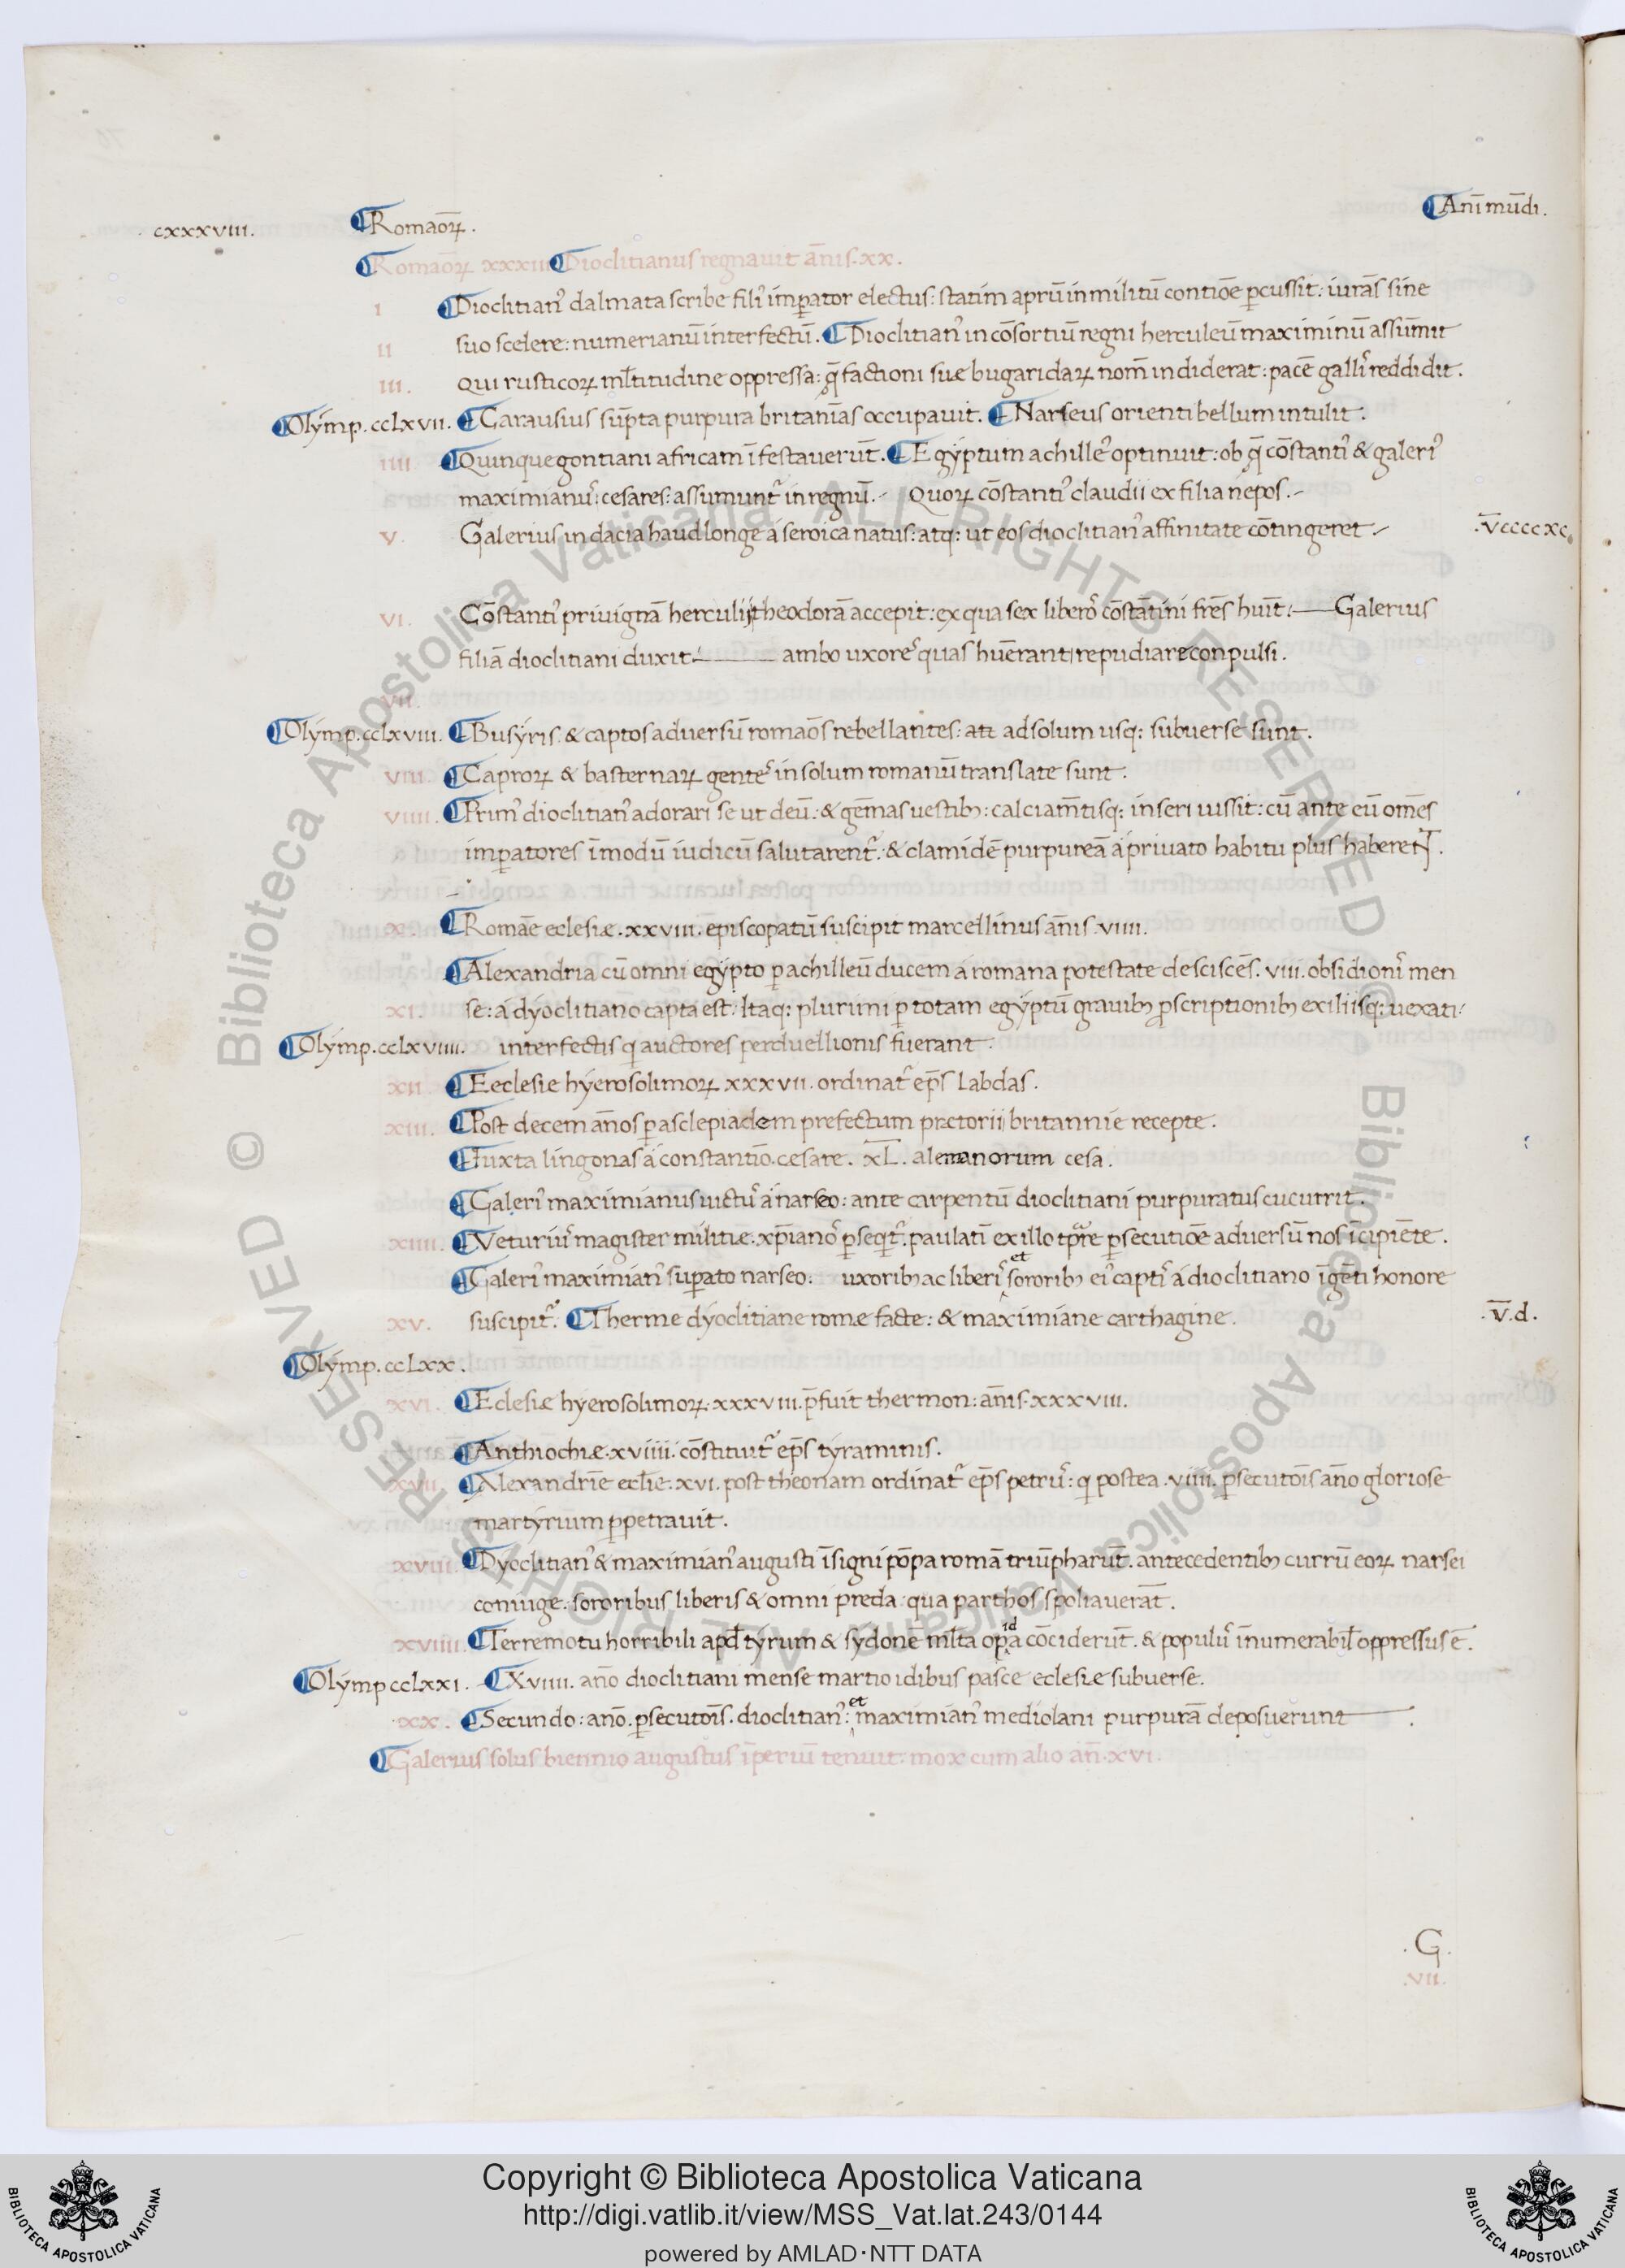 cxxxviii.
Romaōꝝ.
Anī mūdi.
Romaōꝝ xxxiii Dioclitianus regnavit ānis.xx.
i Dioclitianꝰ dalmata scribe filiꝰ imꝑator electus: statim aprū in militū contiōe ꝑcussit: iurās sine
ii suo scelere: numerianū interfectū. Dioclitianꝰ in cōsortiū regni herculeū maximinū assūmit
iii. qui rusticoꝝ ml̄titudine oppressa: q̄ factioni sue bugaridaꝝ nom̄ indiderat: pacē gallꝭ reddidit.
Olẏmp.cclxvii. Carausius sūpta purpura britanīas occupavit. Narseus orienti bellum intulit.
iiii Quinquegontiani africam īfestaverūt. Egẏptum achilleꝰ optinuit: ob q̄ cōstantiꝰ & galeriꝰ
maximianuꝰ: cesares: assumuntꝰ in regnū.- Quoꝝ cōstantiꝰ claudii ex filia nepos.-
v. Galerius in dacia haud longe á seroica natus: atq: ut eos dioclitianꝰ affinitate cōtingeret.-
.v̄ccccxc.
vi. Cōstantiꝰ privignā herculij theodorā accepit: ex qua sex liberoꝰ cōstātini frēs huīt. Galerius
filiā dioclitiani duxit: ambo uxoreꝰ quas huērant repudiare conpulsi.
vii.
Olẏmp.cclxviii. Busẏris & captos adversū romaōs rebellantes: ad solum usq: subverse sunt.
viii. Caproꝝ & basternaꝝ genteꝰ in solum romanū translate sunt.
viiii. Primꝰ dioclitianꝰ adorari se ut deū. & gēmas vestibꝫ: calciam̄tisq: inseri iussit: cū ante eū omēs
imꝑatores ī modū iudicū salutarentꝰ. & clamidē purpureā á privato habitu plus haberet.
x. Romāe eclesiæ.xxviii.episcopatū suscipit marcellinus ānis.viiii.
Alexandria cū omni egẏpto ꝑ achilleū ducem á romana potestate desciscēs. viii. obsidionꝭ men
xi. se: á dẏoclitiano capta est. Itaq: plurimi ꝑ totam egẏptū gravibꝫ ꝓscriptionibꝫ exiliisq: vexati:
Olẏmp.cclxviiii. interfectis qͥ auctores perduellionis fuerant.
xii Ecclesie hẏerosolimoꝝ xxxvii. ordinatꝰ ep̄s Labdas.
xiii. Post decem ānos ꝑ asclepiadem prefectum prætorii britannie recepte.
Iuxta lingonas á constantio. cesare. xL̄. alemanorum cesa.
Galeriꝰ maximianus victuꝰ á narseo: ante carpentū dioclitiani purpuratus cucurrit.
xiiii. Veturiuꝰ magister militiæ. xp̄ianoꝰ ꝑseqͥtꝰ. paulatī ex illo tp̄re ꝑsecutiōe adversū nos īcipiēte.
Galeriꝰ maximianꝰ suꝑato narseo. uxoribꝫ ac liberꝭ et sororibꝫ eiꝰ captꝭ á dioclitiano īgēti honore
xv. suscipitꝰ. Therme dẏoclitiane romæ facte: & maximiane carthagine.
.v̄.d.
Olẏmp.ccLxx.
xvi. Eclesiæ hẏerosolimoꝝ.xxxviii.p̄fuit thermon: ānis.xxxviii.
Anthiochiæ.xviiii. cōstituitꝰ ep̄s tẏraminis.
xvii Alexandrīe eccl̄ie.xvi. post theonam ordinatꝰ ep̄s petruꝰ: qͥ postea. viiii. ꝑsecutoīs año gloriose
martẏrium ꝑpetravit.
xviii. Dẏoclitianꝰ & maximianꝰ augusti īsigni pōpa romā triūpharūt. antecedentibꝫ currū eoꝝ narsei
coniuge. sororibus liberis & omni preda qua parthos spoliaverāt.
xviiii. Terremotu horribili apd̄ tẏrum & sẏdonē ml̄ta opͥͩa cōciderūt. & populuꝰ īnumerabil̄ oppressus ē.
Olẏmp cclxxi. Xviiii. año dioclitiani mense martio idibus pasce eclesiæ subverse.
xx. Secundo: año. ꝑsecutoīs. dioclitianꝰ: et maximianꝰ mediolani purpurā deposuerunt.
Galerius solus biennio augustus īperiū tenuit: mox cum alio an̄.xvi.
.G.
.vii.
© Biblioteca Apostolica Vaticana ALL RIGHTS RESERVED © Biblioteca Apostolica Vaticana ALL RIGHTS RESERVED
Copyright © Biblioteca Apostolica Vaticana
http://digi.vatlib.it/view/MSS_Vat.lat.243/0144
powered by AMLAD·NTT DATA
BIBLIOTECA APOSTOLICA VATICANA
BIBLIOTECA APOSTOLICA VATICANA